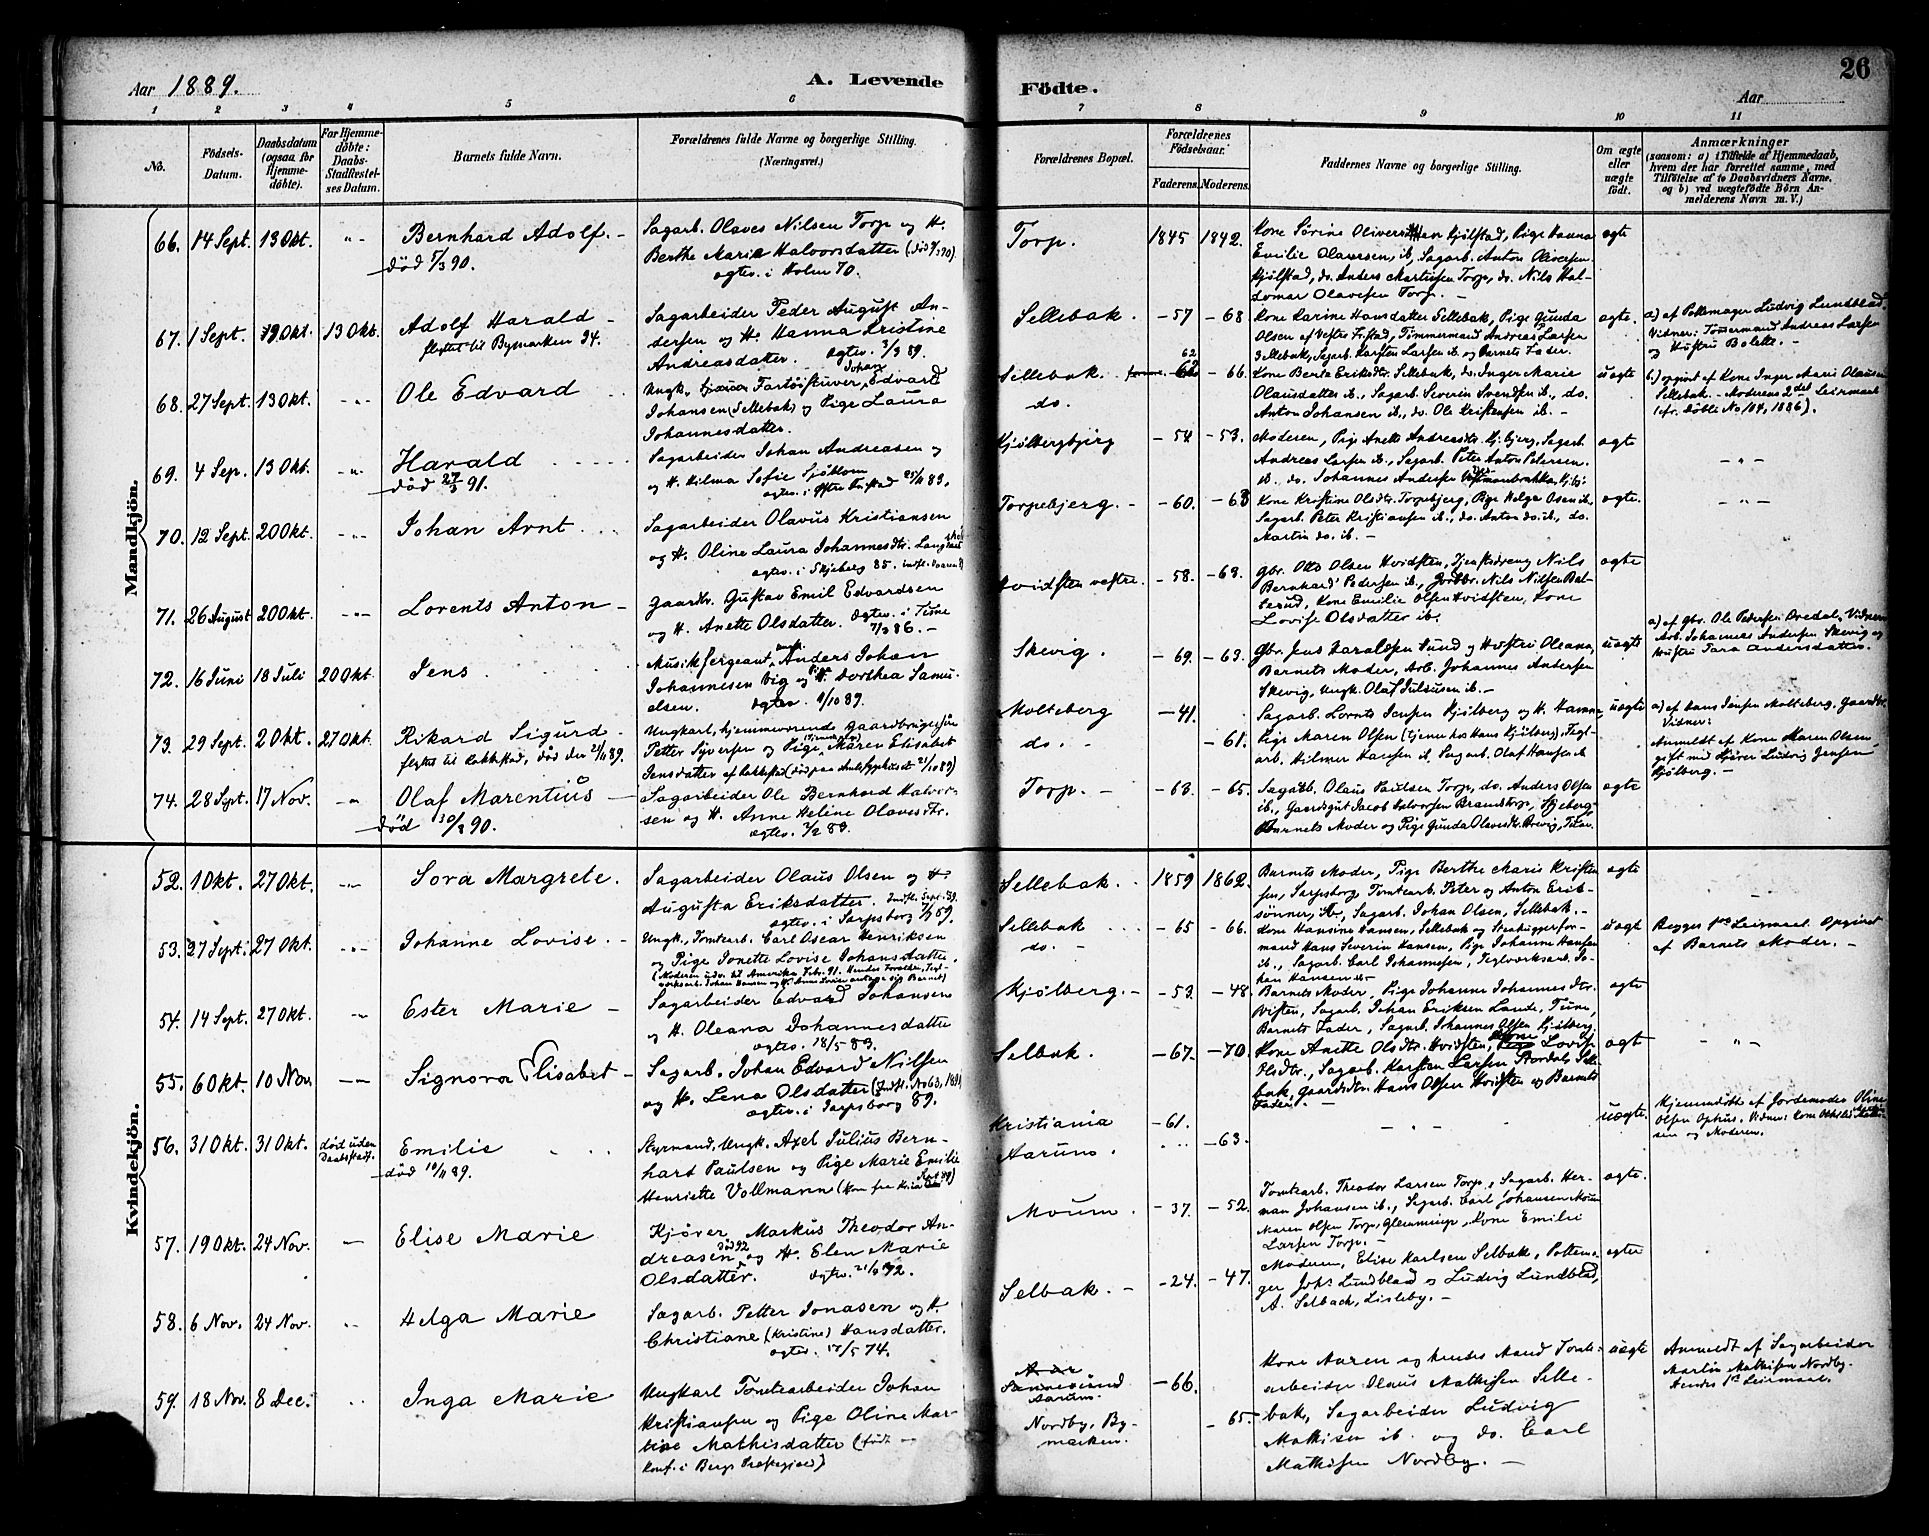 Aar 1889.
A. Levende
Födte.
26
Aar
1 2 3 4 5 6 7 8 9 10 11
No.
Födsels-Datum.
Daabsdatum (ogsaa for Hjemme-döbte).
For Hjemme-döbte: Daabs-Stadfæstel-ses Datum.
Barnets fulde Navn.
Forældrenes fulde Navne og borgerlige Stilling.
(Næringsvei.)
Forældrenes Bopæl.
Forældrenes Födselsaar.
Faderens. Moderens.
Faddernes Navne og borgerlige Stilling.
Om ægte eller uægte født.
Anmærkninger
(saasom: a) i Tilfælde af Hjemmedaab,
hvem der har forrettet samme, med
Tilföielse af to Daabsvidners Navne,
og b) ved uægtefödte Börn An-
melderens Navn m. V.)
Mandkjön.
66. 14 Sept. 13 Okt. -"- Bernhard Adolf.
død 5/3 90.
Sagarb. Olaves Nilsen Torp og H.
Berthe Marie Halvorsdatter
ægtev. i Holm 70.
Torp. 1845 1842.
Emilie Olavesen, ib, Sagarb. Anton Olivesen
Kjølstad, do. Anders Martinsen Torp, do. Nils Hal-
domar Olavesen Torp. -
ægte
67. 1 Sept. 13 Okt. Adolf Harald
flyttet til Bymarken 94.
Sagarbeider Peder August An-
dersen og H. Hanna Kristine
Andreasdatter. ægtev. 3/3 89.
Sellebak. - 57 - 68
Kone Karine Hansdatter Sellebak, Pige Gunda
Olsen af Vestre Fristad, Tømmermand Andreas Larsen
Sellebak, Sagarb. Karsten Larsen ib. og Barnets Fader.
ægte.
a) af Pottemager Ludvig Lundblad.
Vidner: Tømmermand Andreas Larsen
og Hustru Bolette. -
68. 27 Sept. 13 Okt. -"- Ole Edvard
Johan
Edvard
Johansen (Sellebak) og Pige Laura
Johannesdatter.
Sellebak. 62 - 66.
do.
Kone Berte Eriksdtr. Sellebak, do. Inger Marie
Olausdatter ib., Sagarb. Severin Svendsen ib., do.
Anton Johansen ib., do. Ole Kristensen ib. -
uægte
b) opport af Kone Inger Marie Olausen
Sellebak. - Moderens 2det Leiermaal
(cfr. døbte No 104, 1886).
69. 4 Sep. 13 Okt. -"- Harald
død 27/3 91.
Sagarbeider Johan Andreasen og
H. Hilma Sofie Sjöblom
Kjølbergbjerg - 54 - 53.
Moderen, Pige Anette Andreasdtr. Kj.bjerg, Sagarb.
Andreas Larsen ib., Sagarb. Peter Anton Petersen
ib. do. Johannes Andersen
ægte
- " -
70. 12 Sept. 20 Okt. -"- Johan Arnt.
Sagarbeider Olavus Kristiansen
og H. Oline Laura Johannesdtr.
ægtev. i Skjeberg 85.
Torpebjerg. - 60. - 63
Kone Kristine Olsdtr. Torpebjerg, Pige Helga Osen ib,
Sagarb. Peter Kristiansen ib., do. Anton do. ib., do.
Martin do. ib. -
ægte.
- " -
71. 26 August 20 Okt. -"- Lorents Anton
Gaardbr. Gustav Emil Edvardsen
og H. Anette Olsdatter. ægtev. i Tune
7/3 86. -
Hvidsten vestre. - 58. - 63.
Gbr. Otto Olsen Hvidsten, Tjenestedreng Nils
Bernhard Pedersen ib., Jordbr. Nils Nilsen Bal-
lerud, Kone Emilie Olsen Hvidsten, Kone
Lovise Olsdatter ib.
ægte
72. 16 Juni 18 Juli 20 Okt. Jens
Musiksergeant, ungk. Anders Johan
Johannesen Vig og Pige Dorthea Samu-
elsen. ægtev. 4/10 89.
Skevig. - 69. - 63.
Gbr. Jens Haraldsen Sund og Hustru Oleana,
Barnets Moder, Arb. Johannes Andersen
Skevig, Ungk. Olaf Julsusen ib. -
uægte
a) af Gbr. Ole Pedersen Oredal, Vidner:
Arb. Johannes Andersen Skevig og
Hustru Sara Andersdatter.
73. 29 Sept. 2 Okt. 27 Okt. Rikard Sigurd
flyttet til Rakkestad, død der 21/11 89.
Ungkarl, hjemmeværende Gaardbrugersøn
Petter Syversen og Pige Maren Elisabet
Jensdatter
Molteberg - 41.
do. - - 61.
Sagarb. Lornts Jensen Kjølberg og H. Hanna,
Pige Maren Olsen (tjener hos Hans Kjølberg), Tegl-
arb. Hilmer Hansen ib. Sagarb. Olaf Hansen ib
uægte
a) af Hans Jensen Molteberg, Gaardbr.
Vidner:
Anmeldt af Kone Maren Olsen
gift med Kjører Ludvig Jensen
Kjølberg. -
74. 28 Sept. 17 Nov. -"- Olaf Marentius
død 30/3 90.
Sagarbeider Ole Bernhard Halvor-
sen og H. Anne Helene Olavesdtr.
ægtev. 3/2 89.
Torp. - - 63. - 65.
Sagarb. Olaus Paulsen Torp, do. Anders Olsen
ib., Gaardsgut Jacob Halvorsen Brandstorp, Skjeberg,
Barnets Moder og Pige Gunda Olavesdtr.
ægte
Kvindekjön.
52. 1 Okt. 27 Okt. -"- Sora Margrete.
Sagarbeider Olaus Olsen og H.
Augusta Eriksdatter.
ægtev. i Sarpsborg
Sellebak. 1859 1862.
Barnets Moder, Pige Berthe Marie Kristen-
sen, Sarpsborg, Tomtearb. Peter og Anton Erik-
sønner, Sagarb. Johan Olsen, Sellebak. -
ægte
53. 27 Sept. 27 Okt. -"- Johanne Lovise.
Ungk., Tomtearb. Carl Oscar Henriksen
og Pige Jonette Lovise Johansdatter.
Sellebak - 65 - 66.
do. -
Kone Hansine Hansen, Sellebak og Stenhuggerfor-
mand Hans Severin Hansen, Pige Johanne Hansen
ib., Sagarb. Carl Johannesen, Teglværksarb. Jo-
han Hansen ib.
uægt
Begges 1ste Leiermaal Opgivet
af Barnets Moder. -
54. 14 Sept. 27 Okt. -"- Ester Marie
Sagarbeider Edvard Johansen
og H. Oleana Johannesdatter
ægtev. 18/5 83.
Kjølberg. - 53. - 48.
Barnets Moder, Pige Johanne Johannesdtr.
Visten, Sagarb. Johan Eriksen Lande, Tune,
Barnets Fader, Sagarb. Johannes Olsen Kjølberg.
ægte
55. 6 Okt. 10 Nov. - Signora Elisabet
Sagarb. Johan Edvard Nilsen
og H. Lena Olsdatter
ægtev. i Sarpsborg 89.
Selbak. - 67. - 70.
Kone Anette Olsdtr. Hvidsten, Lovise
Olsdtr., Sagarb. Karsten Larsen Stordal, Sel-
bak, Gaardbr. Hans Olsen Hvidsten og Barnets
Fader. -
ægt
- " -
56. 31 Okt. 31 Okt. død uden Daabsstadf. Emilie
død 10/11 89.
Styrmand, Ungk. Axel Julius Bern-
hart Paulsen og Pige Marie Emilie
Henriette Vollmann
Kristiania - 61.
Aarum. - 63.
- " -
uægte.
Hjemmedøbt af Jordemoder Oline
Olsen
og Moderen.
57. 19 Okt. 24 Nov. - Elise Marie
Kjører Markus Theodor An-
dreasen og H. Elen Marie
Olsdatter.
Moum. - 37. - 52.
Tomtearb. Theodor Larsen Torp, Sagarb. Her-
man Johansen ib., Sagarb. Carl Johansen Moum
Maren Olsen Torp, Glemminge, Kone Emilie
Larsen Torp. -
ægte.
58. 6 Nov. 24 Nov. Helga Marie
Sagarb. Petter Jonasen og H.
Christiane (Kristine) Hansdatter.
ægtev. 17/5 74.
Selbak. - - 24. - 47.
Moderen, Elise Karlsen Selbak, Pottema-
ger Johs Lundblad og Ludvig Lundblad,
A. Selbach, Lisleby. -
ægte
59. 18 Nov. 8 Dec. Inga Marie
Ungkarl Tomtearbeider Johan
Kristiansen og Pige Oline Mar-
tine Mathisdatter (født og
konf. i Bergs Præstegjeld)
Sannesund
Aarum. - 66.
Nordby, By-
marken. - 65.
Kone Maren og hendes Mand Tomte-
arbeider Olaus Mathisen Selle-
bak, Sagarbeider Ludvig
Mathisen ib. og do. Carl
Mathisen Nordby. -
uægte
Anmeldt af Sagarbeider
Martin Mathisen Nordby.
Hendes 1ste Leiermaal.